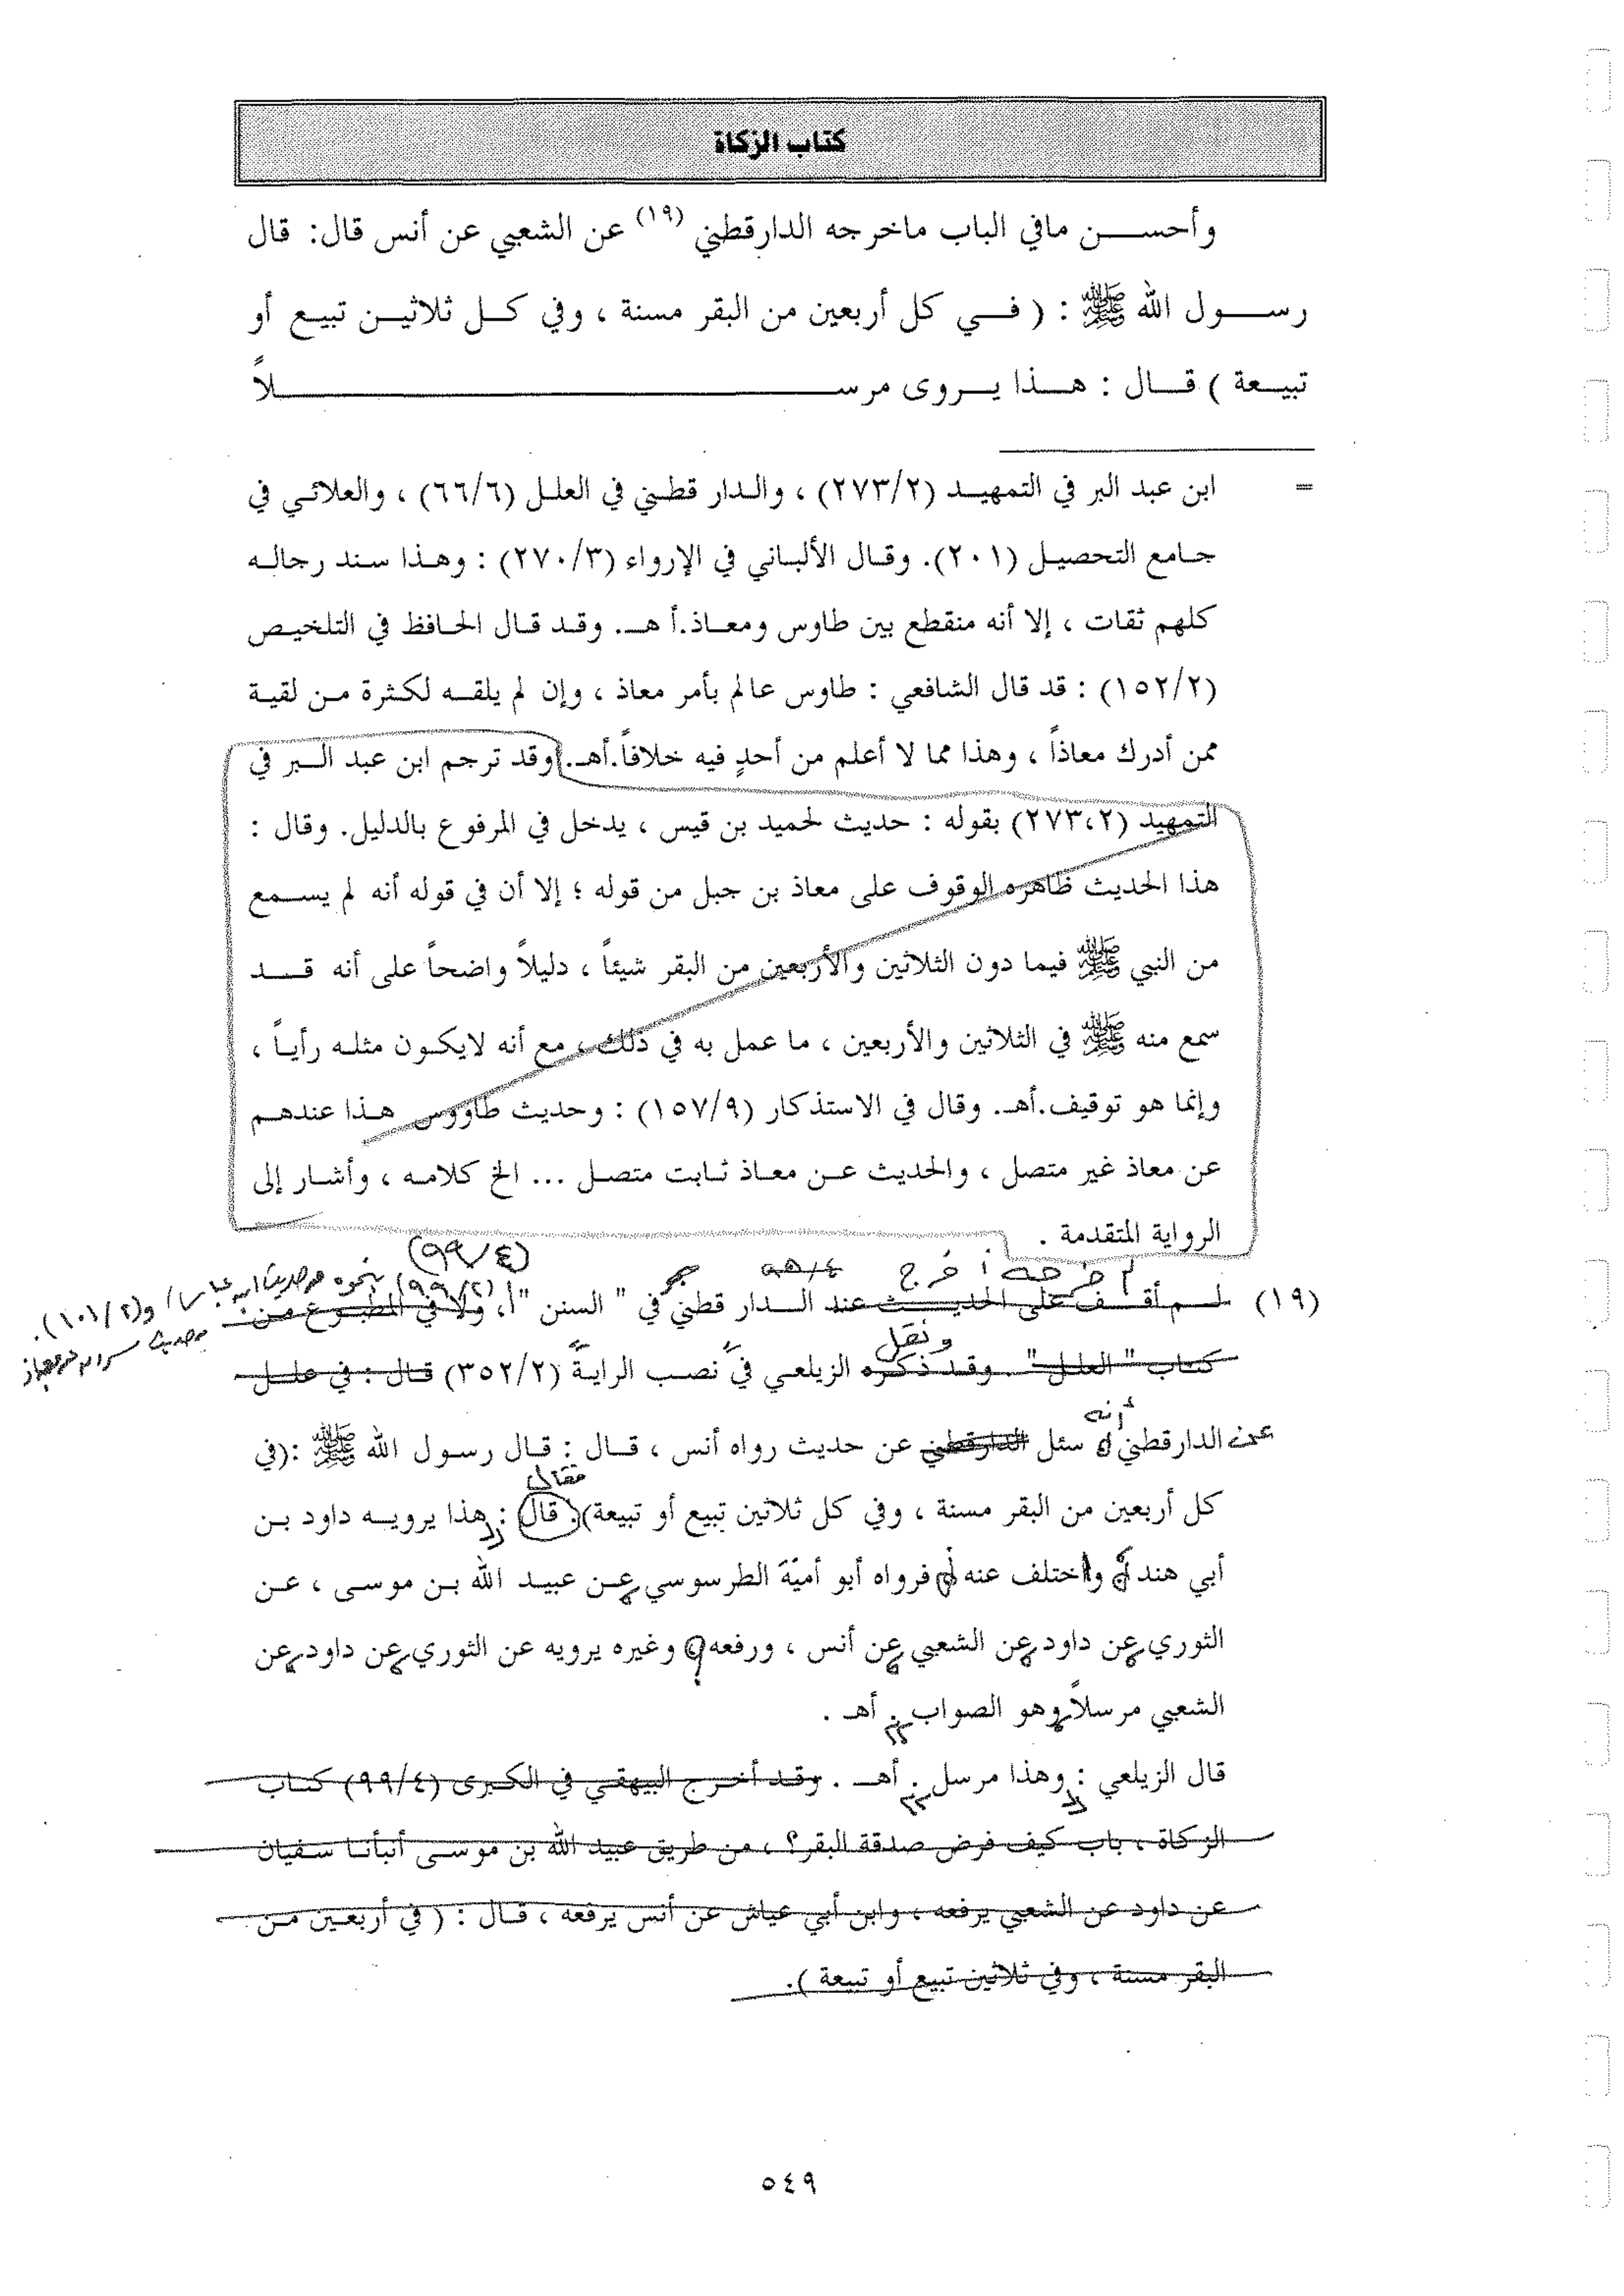 كتاب الزكاة
وأحسن مافي الباب ماخرجه الدارقطني (١٩) عن الشعبي عن أنس قال: قال
رسول الله ﷺ : ( في كل أربعين من البقر مسنة ، وفي كل ثلاثين تبيع أو
تبيعة ) قال : هذا يروى مرسلاً
= ابن عبد البر في التمهيد (٢٧٣/٢) ، والدار قطني في العلل (٦٦/٦) ، والعلائي في
جامع التحصيل (٢٠١). وقال الألباني في الإرواء (٢٧٠/٣) : وهذا سند رجاله
كلهم ثقات ، إلا أنه منقطع بين طاوس ومعاذ.أ هـ. وقد قال الحافظ في التلخيص
(١٥٢/٢) : قد قال الشافعي : طاوس عالم بأمر معاذ ، وإن لم يلقه لكثرة من لقية
ممن أدرك معاذاً ، وهذا مما لا أعلم من أحدٍ فيه خلافاً.أهـ. وقد ترجم ابن عبد البر في
التمهيد (٢٧٣،٢) بقوله : حديث لحميد بن قيس ، يدخل في المرفوع بالدليل. وقال :
هذا الحديث ظاهره الوقوف على معاذ بن جبل من قوله ؛ إلا أن في قوله أنه لم يسمع
من النبي ﷺ فيما دون الثلاثين والأربعين من البقر شيئاً ، دليلاً واضحاً على أنه قد
سمع منه ﷺ في الثلاثين والأربعين ، ما عمل به في ذلك ، مع أنه لايكون مثله رأياً ،
وإنما هو توقيف.أهـ. وقال في الاستذكار (١٥٧/٩) : وحديث طاووس هذا عندهم
عن معاذ غير متصل ، والحديث عن معاذ ثابت متصل ... الخ كلامه ، وأشار إلى
الرواية المتقدمة .
(٩٩/٤)
أخرج
(٩٩/٢) بنحوه من حديث ابن عباس / و(١٠١/٢).
(١٩) لم أقف على الحديث عند الدار قطني في " السنن " ، ولا في المطبوع من :
ونقل
كتاب " العلل " . وقد ذكره الزيلعي في نصب الراية (٣٥٢/٢) قال : في علل
أنه
عن الدارقطني سئل الدارقطني عن حديث رواه أنس ، قال : قال رسول الله ﷺ :(في
فقال
كل أربعين من البقر مسنة ، وفي كل ثلاثين تبيع أو تبيعة). قال : هذا يرويه داود بن
أبي هند واختلف عنه فرواه أبو أميّة الطرسوسي عن عبيد الله بن موسى ، عن
الثوري عن داود عن الشعبي عن أنس ، ورفعه وغيره يرويه عن الثوري عن داود عن
الشعبي مرسلاً وهو الصواب . أهـ .
قال الزيلعي : وهذا مرسل . أهـ . وقد أخرج البيهقي في الكبرى (٩٩/٤) كتاب
الزكاة ، باب كيف فرض صدقة البقر؟ ، من طريق عبيد الله بن موسى أنبأنا سفيان
عن داود عن الشعبي يرفعه ، وابن أبي عياش عن أنس يرفعه ، قال : ( في أربعين من
البقر مسنة ، وفي ثلاثين تبيع أو تبيعة ).
٥٤٩